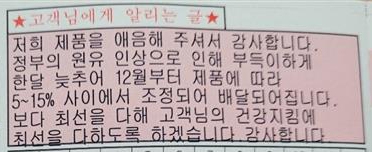 ★고객님에게 알리는 글★
저희 제품을 애음해 주셔서 감사합니다.
정부의 원유 인상으로 인해 부득이하게
한달 늦추어 12월부터 제품에 따라
5~15% 사이에서 조정되어 배달되어집니다.
보다 최선을 다해 고객님의 건강지킴에
최선을 다하도록 하겠습니다.감사합니다